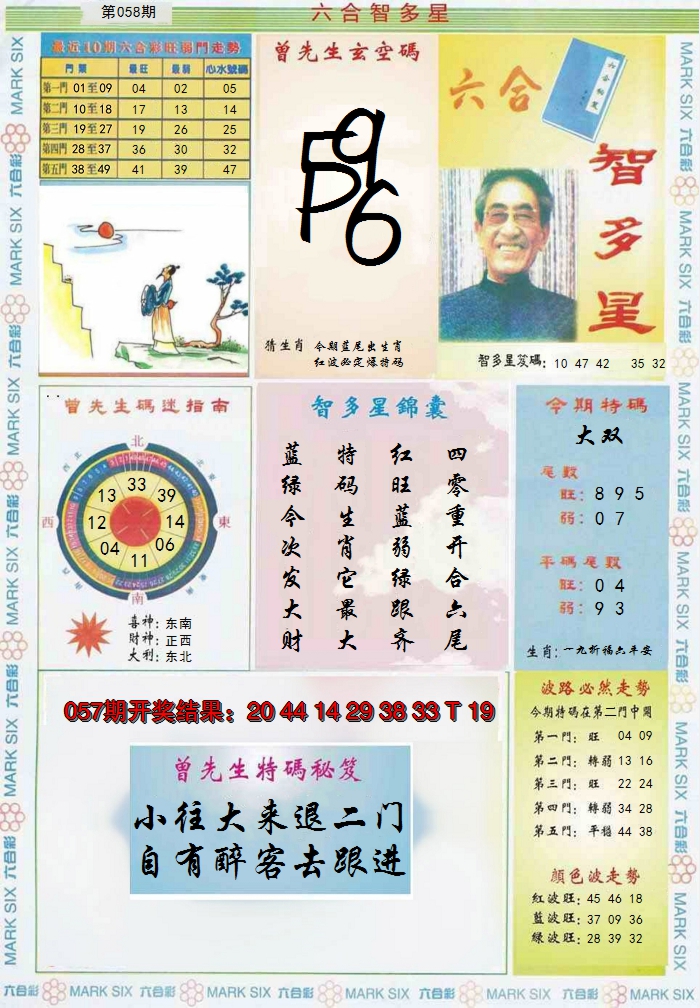 第058期
六合智多星
最近10期六合彩旺弱門走勢
門類 最旺 最弱 心水號碼
第一門 01至09 04 02 05
第二門 10至18 17 13 14
第三門 19至27 19 26 25
第四門 28至37 36 30 32
第五門 38至49 41 39 47
曾先生玄空碼
5
9
6
猜生肖 今期蓝尾出生肖
红波必定爆特码
六合
智多星
智多星笈碼: 10 47 42 35 32
曾先生碼迷指南
北
西
東
南
13 33 39
12 14
04 06
11
喜神: 东南
财神: 正西
大利: 东北
智多星錦囊
四零重开合六尾
红旺蓝弱绿跟齐
特码生肖它最大
蓝绿今次发大财
今期特碼
大双
尾數
旺: 8 9 5
弱: 0 7
平碼尾數
旺: 0 4
弱: 9 3
生肖: 一九祈福六平安
057期开奖结果: 20 44 14 29 38 33 T 19
曾先生特碼秘笈
小往大来退二门
自有醉客去跟进
波路必然走勢
今期特碼在第二門中開
第一門: 旺 04 09
第二門: 轉弱 13 16
第三門: 旺 22 24
第四門: 轉弱 34 28
第五門: 平穩 44 38
顏色波走勢
紅波旺: 45 46 18
藍波旺: 37 09 36
綠波旺: 28 39 32
MARK SIX 六合彩 MARK SIX 六合彩 MARK SIX 六合彩 MARK SIX 六合彩